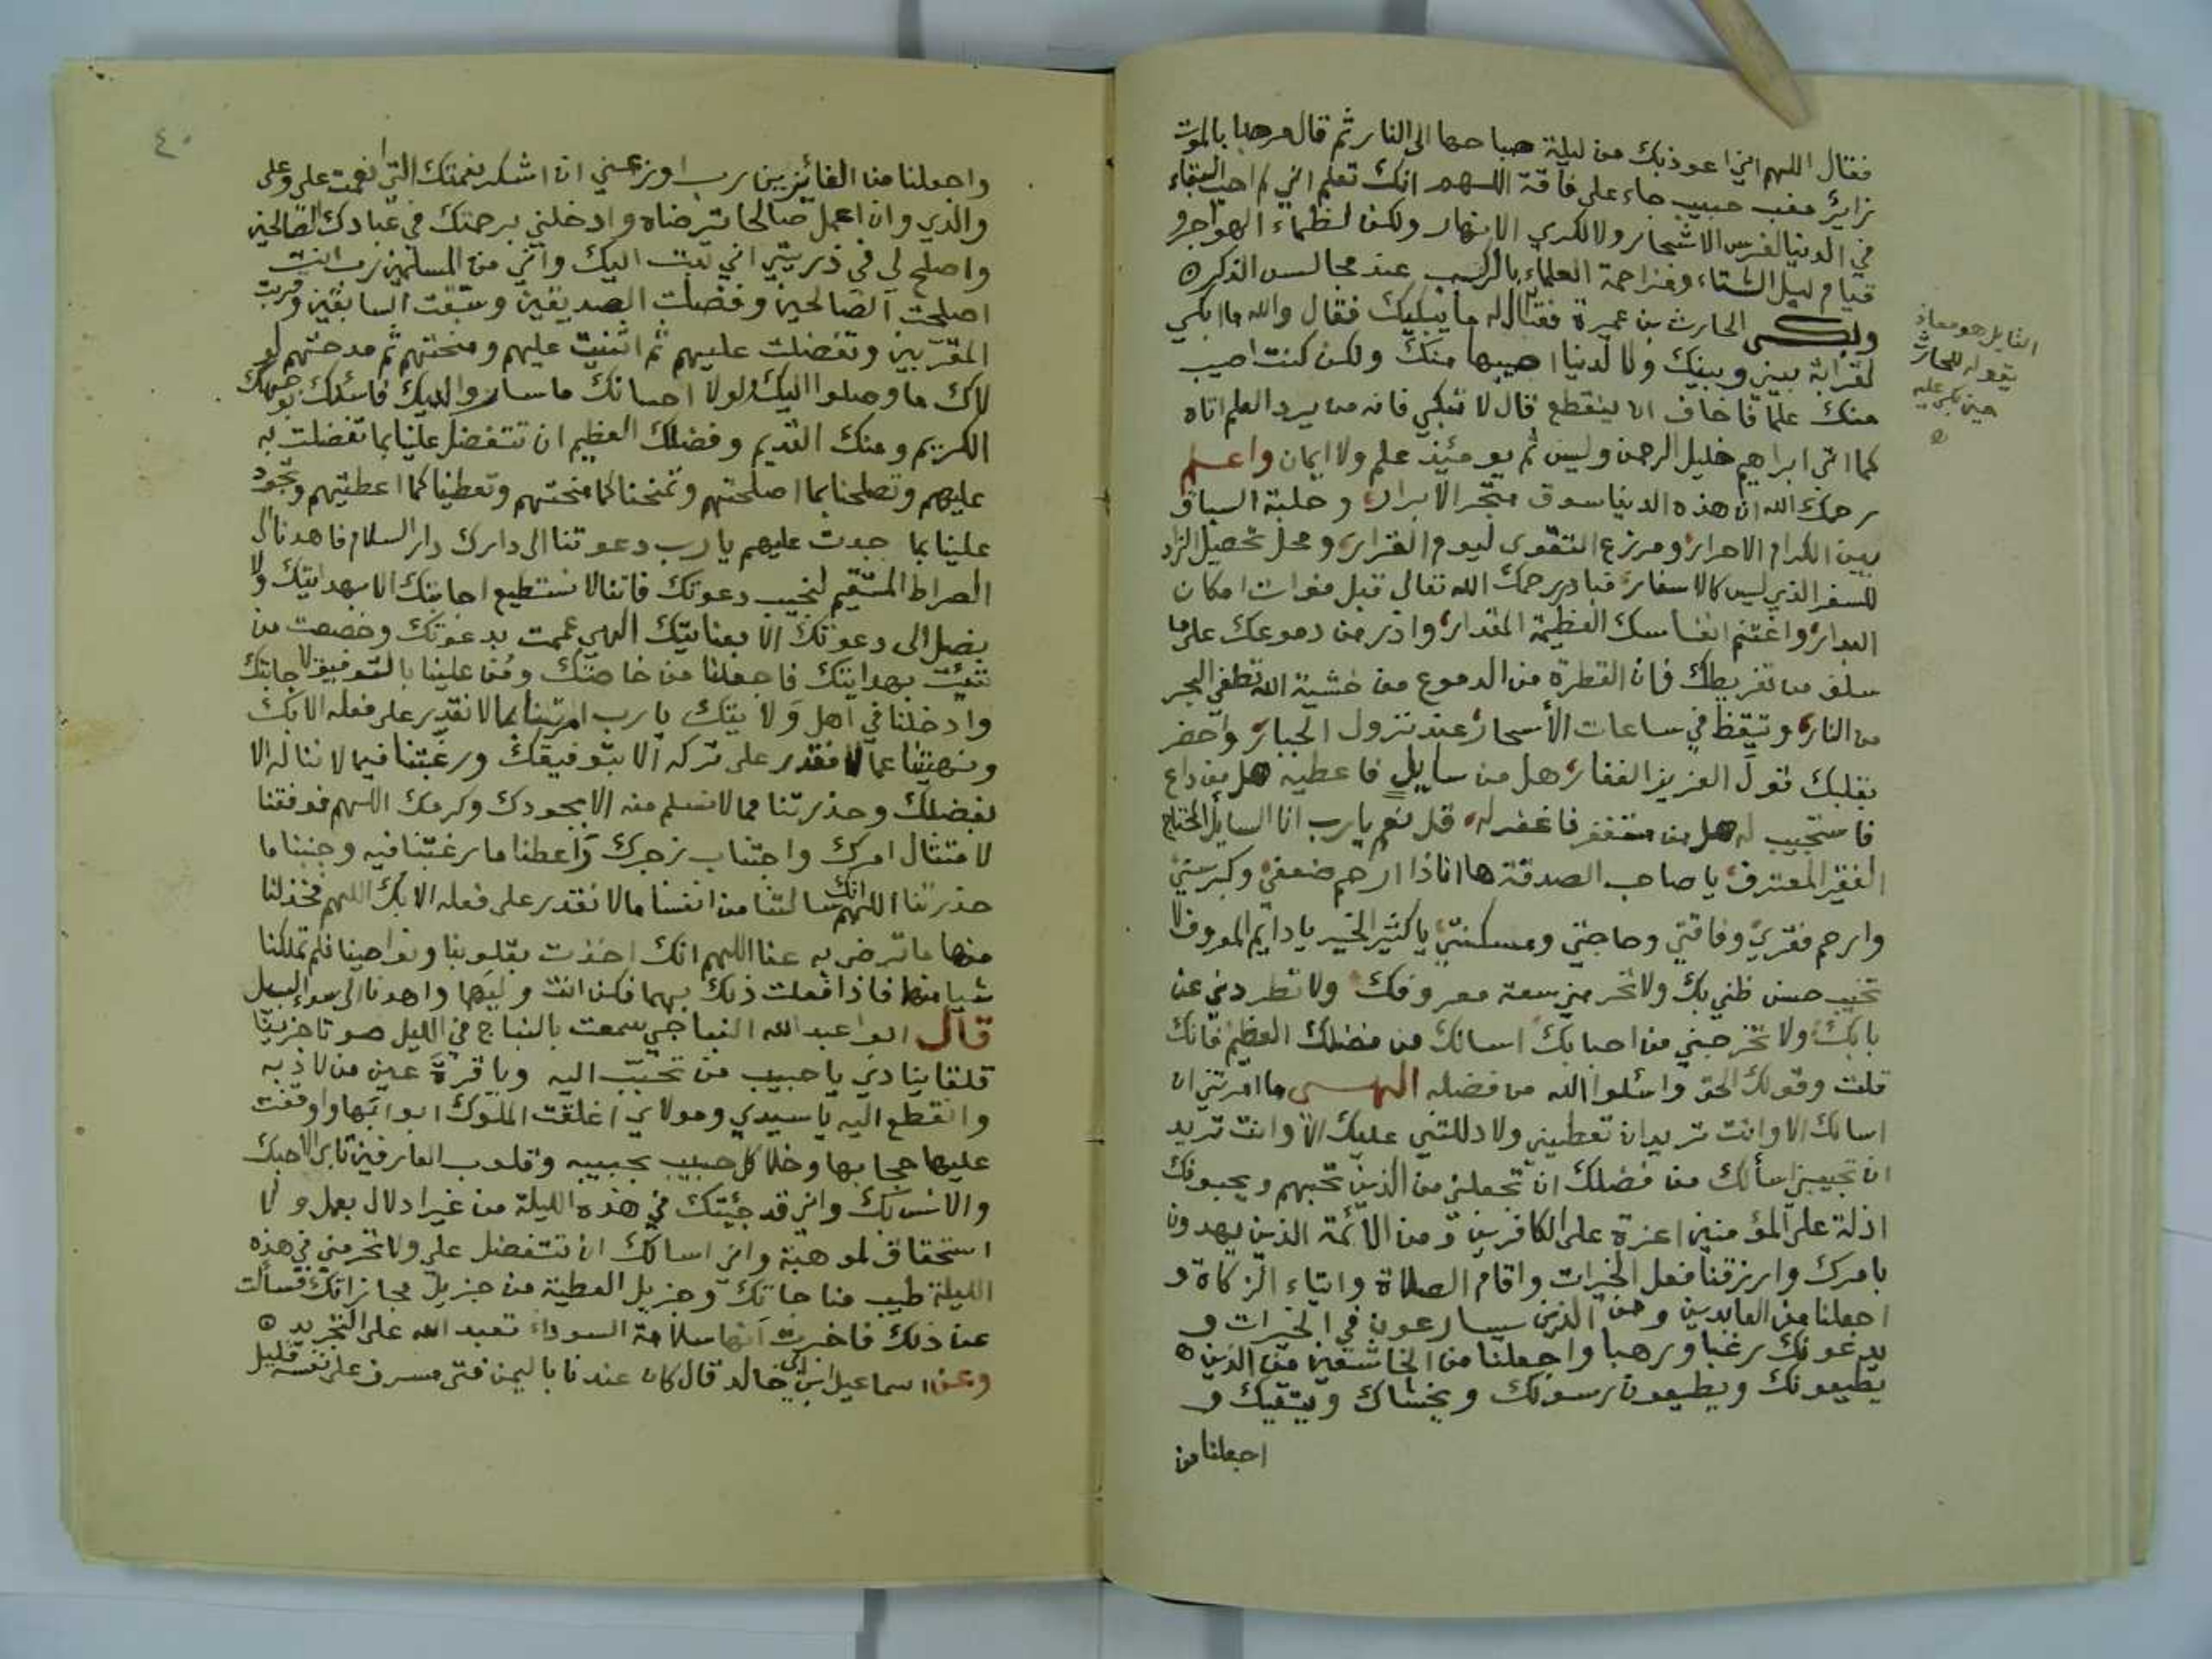 فقال اللهم اني اعوذ بك من ليلة صباحها الى النار ثم قال مرحبا بالموت
زاير مغب حبيب جاء على فاقة اللهم انك تعلم اني لم احب البقاء
في الدنيا لغرس الاشجار ولا لكري الانهار ولكن لظماء الهواجر و
قيام ليل الشتاء ومزاحمة العلماء بالركب عند مجالس الذكر
وبكى الحارث بن عميرة فقال له ما يبكيك فقال والله ما ابكي
لقرابة بيني وبينك ولا لدنيا اصيبها منك ولكن كنت اصيب
منك علما فاخاف ان ينقطع قال لا تبكي فانه من يرد العلم اتاه
كما اتى ابراهيم خليل الرحمن وليس ثم يومئذ علم ولا ايمان واعلم
رحمك الله ان هذه الدنيا سوق متجر الابرار وحلبة السباق
بين الكرام الاحرار ومزرع التقوى ليوم القرار ومحل تحصيل الزاد
للسفر الذي ليس كالاسفار فبادر رحمك الله تعالى قبل فوات امكان
البدار واغتنم انفاسك العظيمة المقدار واذر من دموعك على ما
سلف من تفريطك فان القطرة من الدموع من خشية الله تطفي البحر
من النار وتيقظ في ساعات الأسحار عند نزول الجبار واحضر
بقلبك قول العزيز الغفار هل من سايل فاعطيه هل من داع
فاستجيب له هل من مستغفر فاغفر له قل نعم يا رب انا السايل
الفقير المعترف يا صاحب الصدقة ها انا ذا ارحم ضعفي وكبر سني
وارحم فقري وفاقتي وحاجتي ومسكنتي يا كثير الخير يا دايم المعروف لا
تخيب حسن ظني بك ولا تحرمني سعة معروفك ولا تطردني عن
بابك ولا تخرجني من احبابك اسالك من فضلك العظيم فانك
قلت وقولك الحق واسئلوا الله من فضله الهي ما امرتني ان
اسالك الا وانت تريد ان تعطيني ولا دللتني عليك الا وانت تريد
ان تجيبني اسألك من فضلك ان تجعلني من الذين تحبهم ويحبونك
اذلة على المؤمنين اعزة على الكافرين ومن الائمة الذين يهدون
بامرك وارزقنا فعل الخيرات واقام الصلاة وايتاء الزكاة و
اجعلنا من العابدين ومن الذين يسارعون في الخيرات و
يدعونك رغبا ورهبا واجعلنا من الخاشعين من الذين
يطيعونك ويطيعون رسولك ويخشاك ويتقيك و
اجعلنا من
القايل هو معاذ
يقوله للحارث
حين بكى عليه
٤٠
واجعلنا من الفائزين رب اوزعني ان اشكر نعمتك التي انعمت علي وعلى
والدي وان اعمل صالحا ترضاه وادخلني برحمتك في عبادك الصالحين
واصلح لي في ذريتي اني تبت اليك واني من المسلمين رب انت
اصلحت الصالحين وفضلت الصديقين وسبقت السابقين وقربت
المقربين وتفضلت عليهم ثم اثنيت عليهم ومنحتهم ثم مدحتهم لو
لاك ما وصلوا اليك ولولا احسانك ما ساروا اليك فاسئلك بوجهك
الكريم ومنك القديم وفضلك العظيم ان تتفضل علينا بما تفضلت به
عليهم وتصلحنا بما اصلحتهم وتمنحنا كما منحتهم وتعطينا كما اعطيتهم وتجود
علينا بما جدت عليهم يا رب دعوتنا الى دارك دار السلام فاهدنا الى
الصراط المستقيم لنجيب دعوتك فاننا لا نستطيع اجابتك الا بهدايتك ولا
يصل الى دعوتك الا بعنايتك الهي عممت بدعوتك وخصصت من
شئت بهدايتك فاجعلنا من خاصتك ومن علينا بالتوفيق لاجابتك
وادخلنا في اهل ولايتك يا رب امرتنا بما لا نقدر على فعله الا بك
ونهيتنا عما لا نقدر على تركه الا بتوفيقك ورغبتنا فيما لا نناله الا
بفضلك وحذرتنا مما لا نسلم منه الا بجودك وكرمك اللهم فوفقنا
لامتثال امرك واجتناب زجرك واعطنا ما رغبتنا فيه وجنبنا ما
حذرتنا اللهم انك سالتنا من انفسنا ما لا نقدر على فعله الا بك اللهم فخذ لنا
منها ما ترضى به عنا اللهم انك اخذت بقلوبنا ونواصينا فلم تملكنا
شيا منها فاذا فعلت ذلك بهما فكن انت وليهما واهدنا الى سواء السبيل
قال ابوا عبد الله النباجي سمعت بالنباج في الليل صوتا حزينا
قلقا ينادي يا حبيب من تحبب اليه ويا قرة عين من لاذ به
وانقطع اليه يا سيدي ومولاي اغلقت الملوك ابوابها واوقفت
عليها حجابها وخلا كل حبيب بحبيبه وقلوب العارفين الاحبك
والانس بك واني قد جيئتك في هذه الليلة من غير ادلال بعمل ولا
استحقاق لموهبة واني اسالك ان تتفضل علي ولا تحرمني في هذه
الليلة طيب مناجاتك وجزيل العطية من جزيل مجازاتك فسالت
عن ذلك فاخبرت انها سلامة السوداء تعبد الله على التجريد
وعن اسماعيل ابن ابي خالد قال كان عندنا باليمن فتى مسرف على نفسه قليل